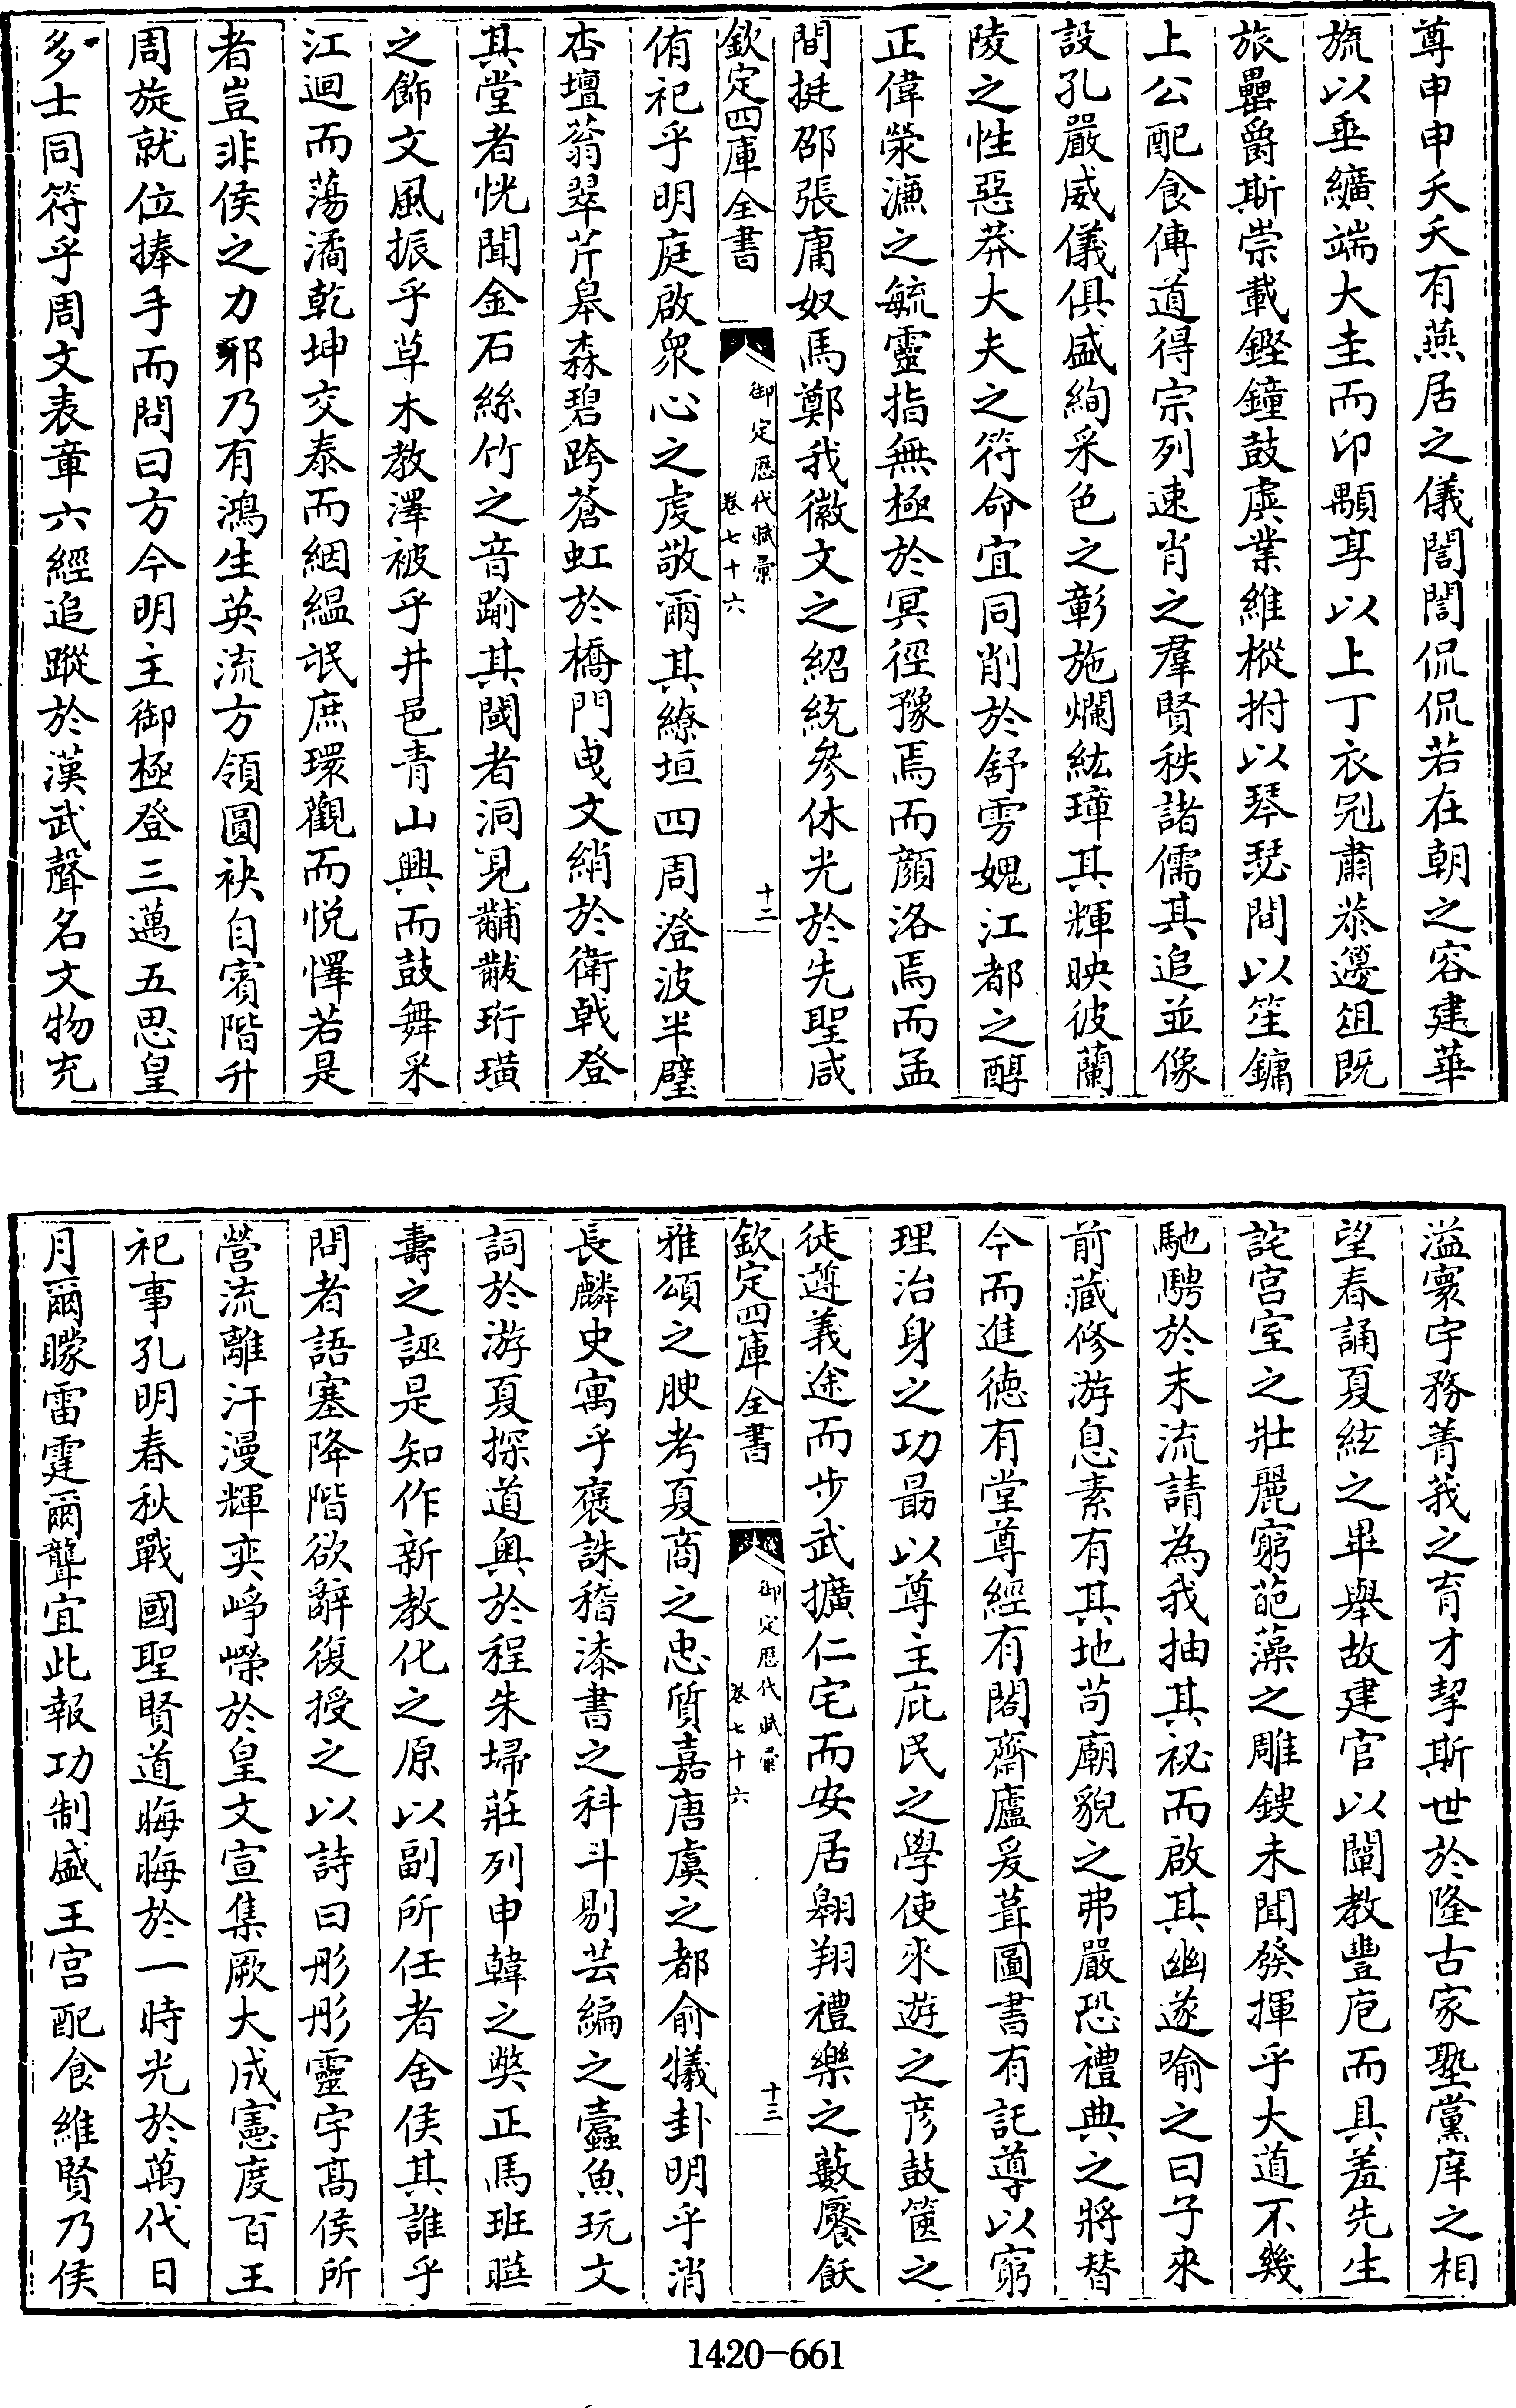 尊申申夭夭有燕居之儀誾誾侃侃若在朝之容建華
旒以垂纊端大圭而卬顒享以上丁衣冠肅恭籩俎既
旅罍爵斯崇載鏗鐘鼓虡業維樅拊以琴瑟間以笙鏞
上公配食傅道得宗列速肖之羣賢秩諸儒其追並像
設孔嚴威儀俱盛絢采色之彰施爛紘璋其輝映彼蘭
陵之性惡莽大夫之符命宜同削於舒雱媿江都之醇
正偉滎濂之毓靈指無極於冥徑豫焉而顔洛焉而孟
間挺邵張庸奴馬鄭我徽文之紹統參休光於先聖咸
欽定四庫全書
御定歷代賦彙
卷七十六
十二
侑祀乎明庭啟衆心之虔敬爾其繚垣四周澄波半璧
杏壇蓊翠芹皋森碧跨蒼虹於橋門曳文綃於衛戟登
其堂者恍聞金石絲竹之音踰其閾者洞見黼黻珩璜
之飾文風振乎草木教澤被乎井邑青山興而鼓舞采
江迴而蕩潏乾坤交泰而絪縕氓庶環觀而悦懌若是
者豈非侯之力邪乃有鴻生英流方領圓袂自賓階升
周旋就位捧手而問曰方今明主御極登三邁五思皇
多士同符乎周文表章六經追蹤於漢武聲名文物充
溢寰宇務菁莪之育才挈斯世於隆古家塾黨庠之相
望春誦夏絃之畢舉故建官以闡教豐庖而具羞先生
詫宫室之壯麗窮葩藻之雕鎪未聞發揮乎大道不幾
馳騁於末流請為我抽其祕而啟其幽遂喻之曰子來
前藏修游息素有其地苟廟貌之弗嚴恐禮典之將替
今而進徳有堂尊經有閣齋廬爰葺圖書有託導以窮
理治身之功最以尊主庇民之學使來遊之彦鼓篋之
徒遵義途而步武擴仁宅而安居翱翔禮樂之藪饜飫
欽定四庫全書
御定歷代賦彙
卷七十六
十三
雅頌之腴考夏商之忠質嘉唐虞之都俞犧卦明乎消
長麟史寓乎褒誅稽漆書之科斗剔芸編之蠹魚玩文
詞於游夏探道奥於程朱埽莊列申韓之獘正馬班瞱
壽之誣是知作新教化之原以副所任者舍侯其誰乎
問者語塞降階欲辭復授之以詩曰彤彤靈宇髙侯所
營流離汗漫輝奕崢嶸於皇文宣集厥大成憲度百王
祀事孔明春秋戰國聖賢道晦晦於一時光於萬代日
月爾矇雷霆爾聾宜此報功制盛王宫配食維賢乃侯
1420-661